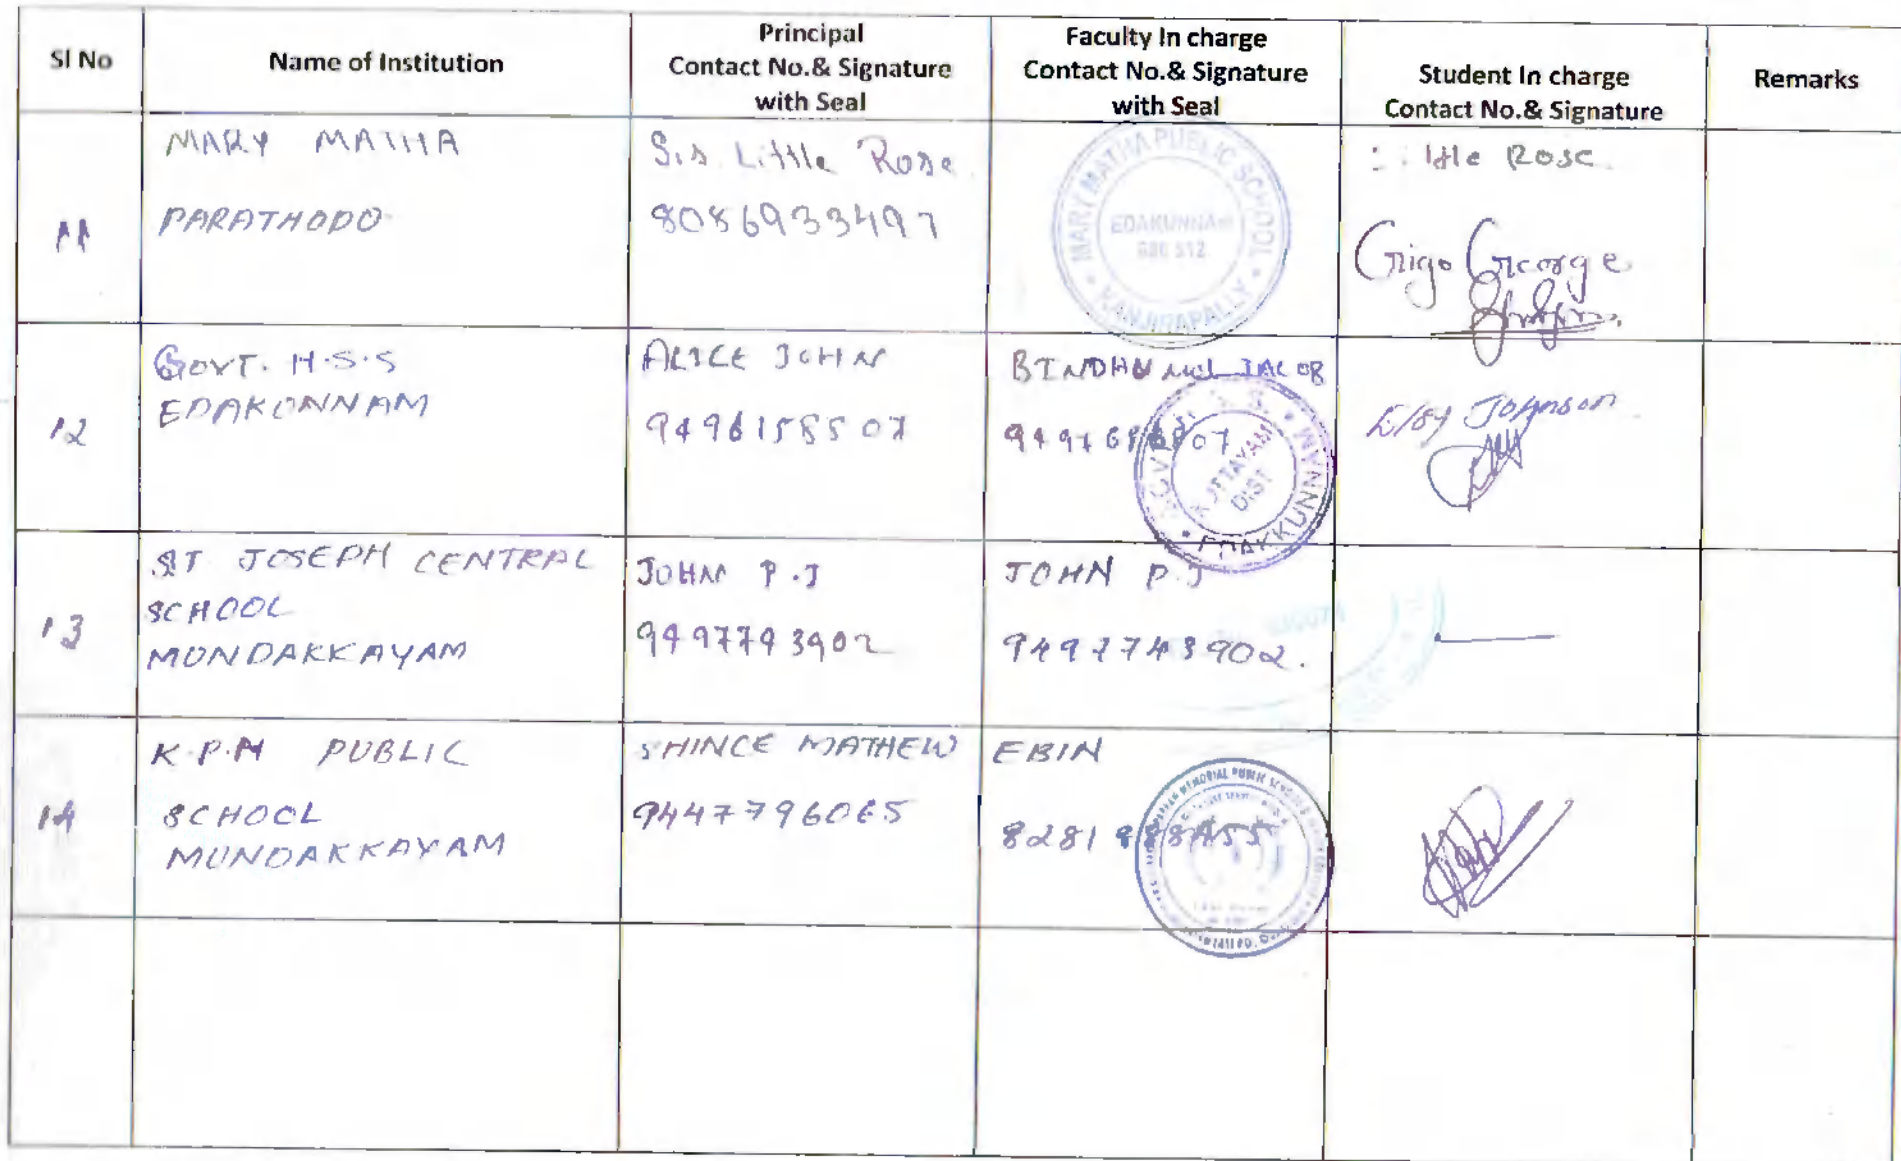 Sl No
Name of Institution
Principal
Contact No.& Signature
with Seal
Faculty In charge
Contact No.& Signature
with Seal
Student In charge
Contact No.& Signature
Remarks
11
MARY MATHA
PARATHODO
Sis. Little Rose
8086933497
MARY MATHA PUBLIC SCHOOL
EDAKUNNAM
686 512
KANJIRAPALLY
Rose
Gigo George
12
GOVT. H.S.S
EDAKUNNAM
ALICE JOHN
9496158507
BINDHU MOL JACOB
KOTTAYAM
DIST
EDAKKUNNAM
Elsy Johnson
13
ST JOSEPH CENTRAL
SCHOOL
MUNDAKKAYAM
JOHN P.J
9497743902
JOHN P.J
9497743902.
14
K.P.M PUBLIC
SCHOOL
MUNDAKKAYAM
SHINCE MATHEW
9447796065
EBIN
8281
MEMORIAL PUBLIC SCHOOL